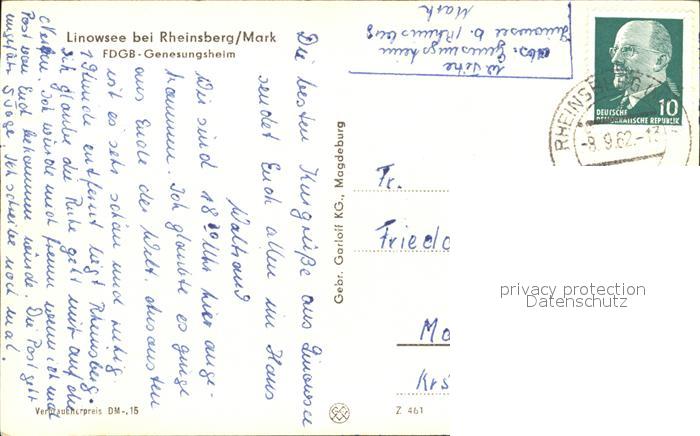 Linowsee bei Rheinsberg/Mark
FDGB-Genesungsheim
Die besten Kurgrüße aus Linowsee
sendet Euch allen im Haus
Waltraud
Wir sind 18 30 Uhr hier ange-
kommen. Ich glaubte es ginge
ans Ende der Welt. Ansonsten
ist es sehr schön und ruhig.
1 Stunde entfernt liegt Rheinsberg.
Ich glaube die Ruhe geht mir auf die
Nerfen. Ich würde mich freuen wenn ich mal
Post von Euch bekommen würde. Die Post geht
ungefähr 5 Tage. Ich schreibe noch mal.
Verbraucherpreis DM -,15
Gebr. Garloff KG., Magdeburg
Z 461
Abs. Genesungsheim
Linowsee b. Rheinsberg
Mark
10
DEUTSCHE
DEMOKRATISCHE REPUBLIK
RHEINSBERG
-8.9.62.-13
Fr.
Friedc
Ma
Krs
privacy protection
Datenschutz